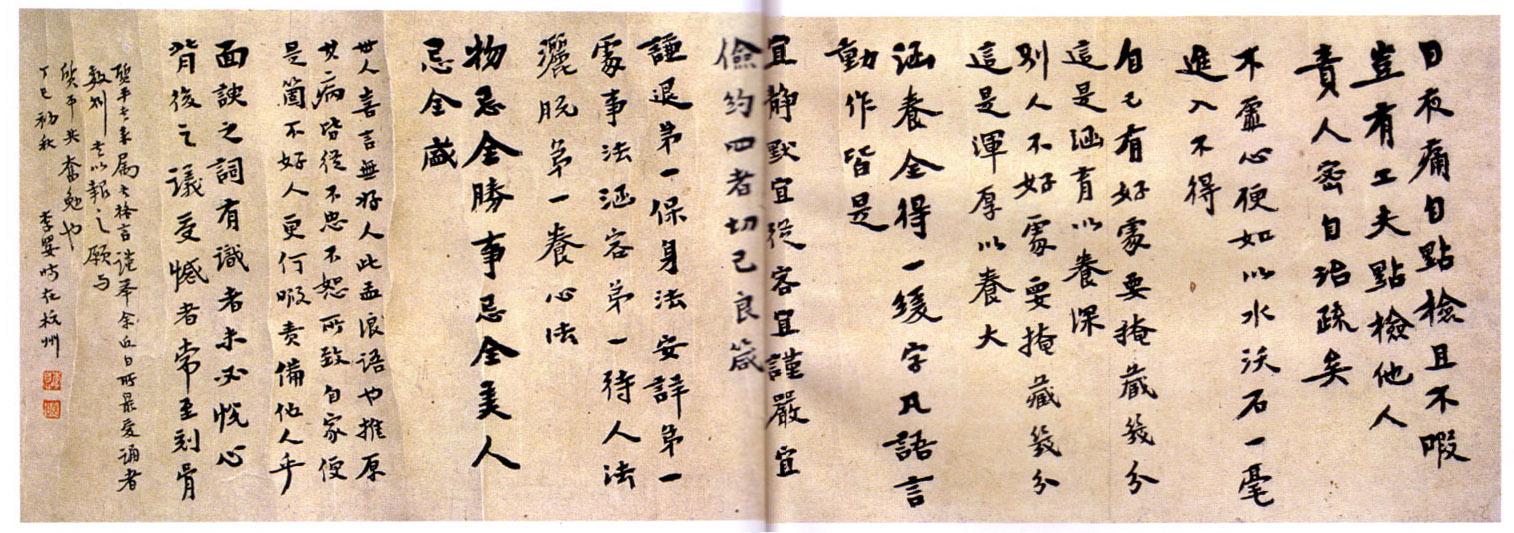 日夜痛自點檢且不暇
豈有工夫點檢他人
責人密自治疏矣
不虛心便如以水沃石一毫
進入不得
自己有好處要掩藏幾分
這是涵育以養深
別人不好處要掩藏幾分
這是渾厚以養大
涵養全得一緩字凡語言
動作皆是
宜靜默宜從容宜謹嚴宜
儉約四者切己良箴
謙退第一保身法安詳第一
處事法涵容第一待人法
灑脫第一養心法
物忌全勝事忌全美人
忌全盛
世人喜言無好人此孟浪語也推原
其病皆從不忠不恕所致自家便
是箇不好人更何暇責備他人乎
面諛之詞有識者未必悅心
背後之議受憾者常至刻骨
質平來屬書格言謹奉余近日所最愛誦者
數則書以報之願與
質平共奮勉也
丁巳初秋 李嬰時在杭州